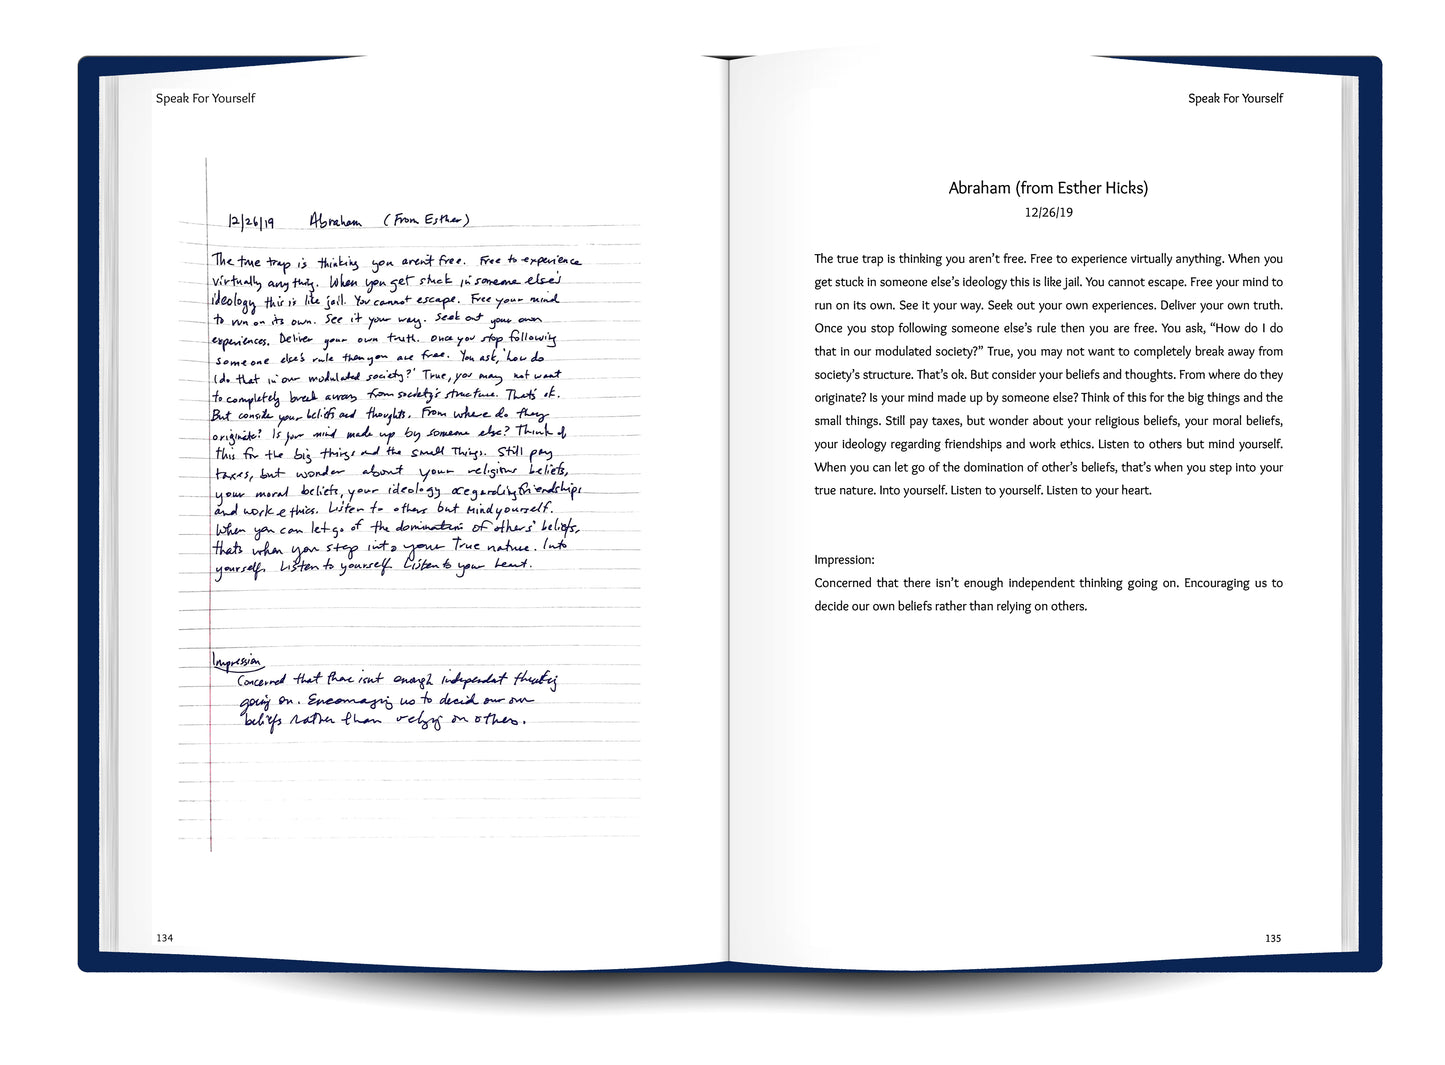 Speak For Yourself
12/26/19 Abraham (From Esther)
The true trap is thinking you aren't free. Free to experience
virtually anything. When you get stuck in someone else's
ideology this is like jail. You cannot escape. Free your mind
to run on its own. See it your way. Seek out your own
experiences. Deliver your own truth. Once you stop following
someone else's rule then you are free. You ask, 'how do
I do that in our modulated society?' True, you may not want
to completely break away from society's structure. That's ok.
But consider your beliefs and thoughts. From where do they
originate? Is your mind made up by someone else? Think of
this for the big things and the small things. Still pay
taxes, but wonder about your religious beliefs,
your moral beliefs, your ideology regarding friendships
and work ethics. Listen to others but mind yourself.
When you can let go of the domination of others' beliefs,
thats when you step into your True nature. Into
yourself. Listen to yourself. Listen to your heart.
Impression
Concerned that there isnt enough independent thinking
going on. Encouraging us to decid our own
beliefs rather than relying on others.
134
Speak For Yourself
Abraham (from Esther Hicks)
12/26/19
The true trap is thinking you aren't free. Free to experience virtually anything. When you
get stuck in someone else's ideology this is like jail. You cannot escape. Free your mind to
run on its own. See it your way. Seek out your own experiences. Deliver your own truth.
Once you stop following someone else's rule then you are free. You ask, “How do I do
that in our modulated society?” True, you may not want to completely break away from
society's structure. That's ok. But consider your beliefs and thoughts. From where do they
originate? Is your mind made up by someone else? Think of this for the big things and the
small things. Still pay taxes, but wonder about your religious beliefs, your moral beliefs,
your ideology regarding friendships and work ethics. Listen to others but mind yourself.
When you can let go of the domination of other's beliefs, that's when you step into your
true nature. Into yourself. Listen to yourself. Listen to your heart.
Impression:
Concerned that there isn't enough independent thinking going on. Encouraging us to
decide our own beliefs rather than relying on others.
135